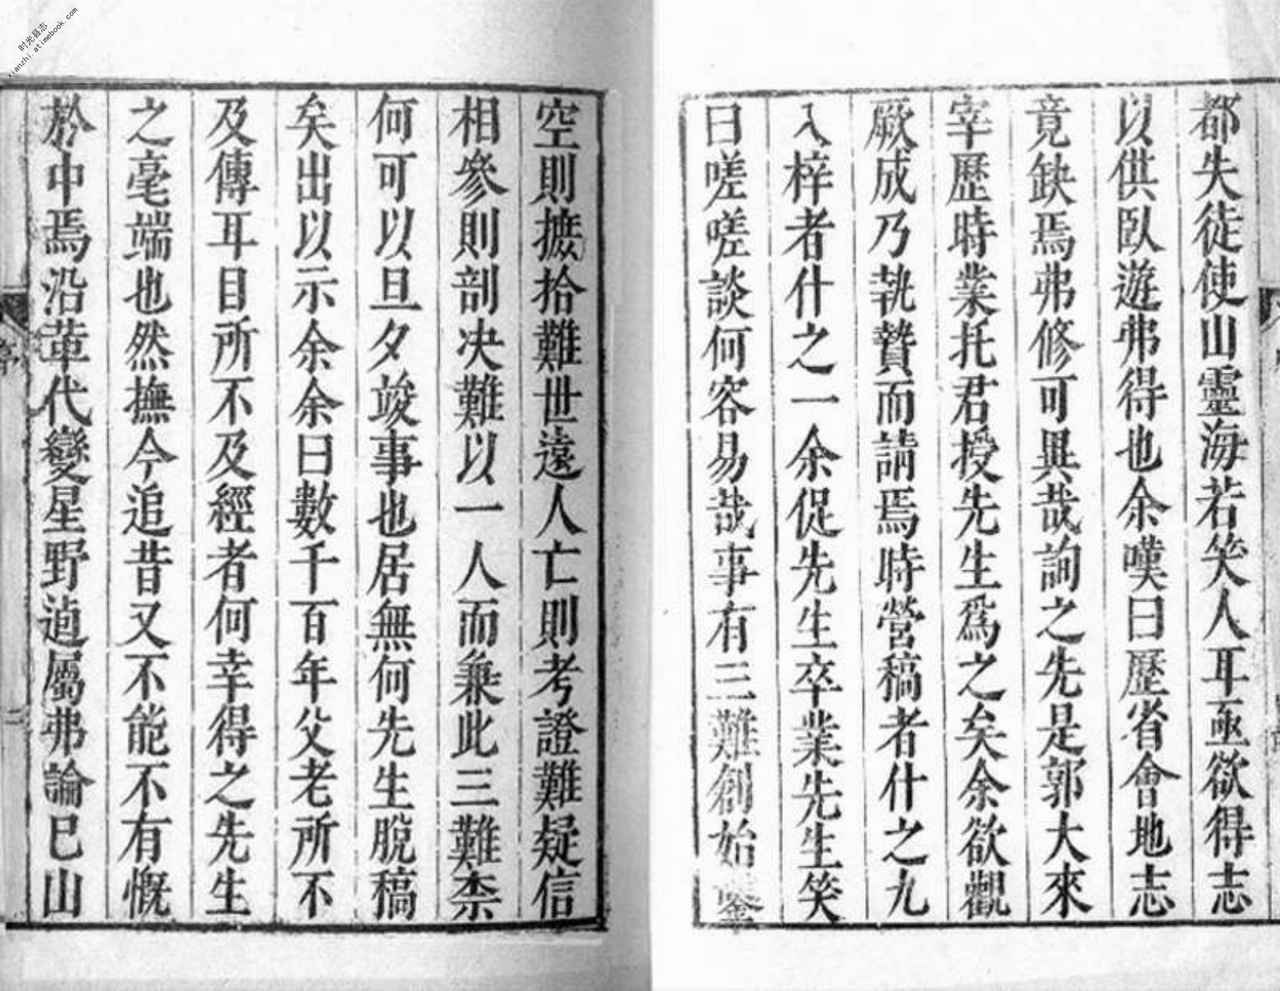 都失徒使山靈海若笑人耳亟欲得志
以供臥遊弗得也余嘆曰歷省會地志
竟缺焉弗修可異哉詢之先是郭大來
宰歷時業托君授先生爲之矣余欲觀
厥成乃執贄而請焉時營稿者什之九
入梓者什之一余促先生卒業先生笑
曰嗟嗟談何容易哉事有三難創始鑿
空則摭拾難世遠人亡則考證難疑信
相參則剖决難以一人而兼此三難柰
何可以旦夕竣事也居無何先生脫稿
矣出以示余余曰數千百年父老所不
及傳耳目所不及經者何幸得之先生
之毫端也然撫今追昔又不能不有慨
於中焉沿革代變星野逌屬弗論巳山
时光县志
xianzhi.atimebook.com